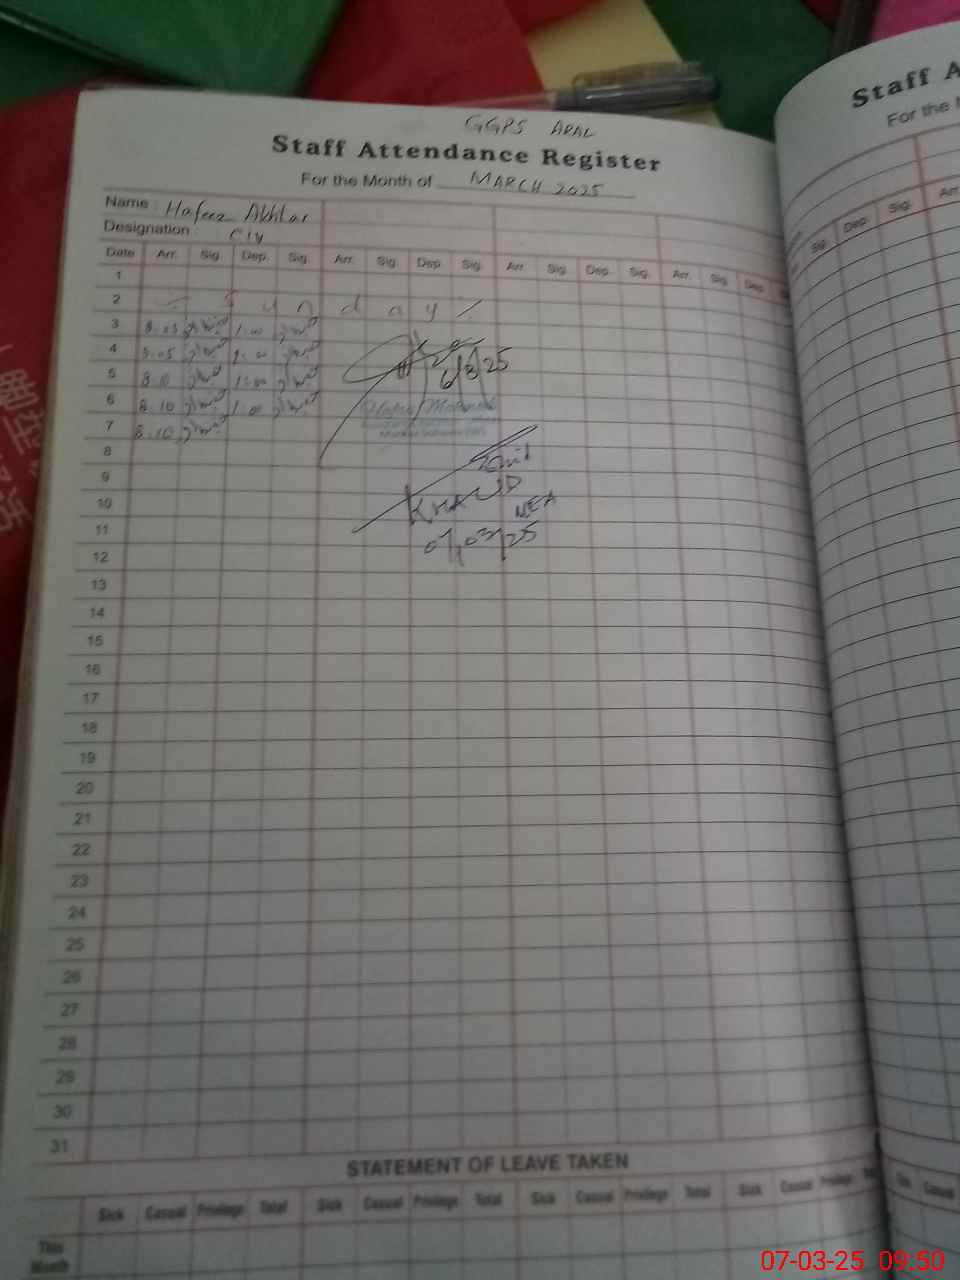 GGPS ARAL
Staff Attendance Register
For the Month of MARCH 2025
Name : Hafeez Akhtar
Designation : C/V
Date Arr. Sig. Dep. Sig. Arr. Sig. Dep. Sig. Arr. Sig. Dep. Sig. Arr. Sig. Dep.
1
2 Sunday
3 8.05 1.00
4 8.05 1.00
5 8.10 1.00
6 8.10 1.00
7 8.10
6/3/25
8
9
KHALID
10
MEA
11
07/03/25
12
13
14
15
16
17
18
19
20
21
22
23
24
25
26
27
28
29
30
31
STATEMENT OF LEAVE TAKEN
Sick Casual Privilege Total Sick Casual Privilege Total Sick Casual Privilege Total Sick Casual Privilege
This Month
Staff A
For the
Sig. Dep. Sig. Arr
Casual
07-03-25 09:50